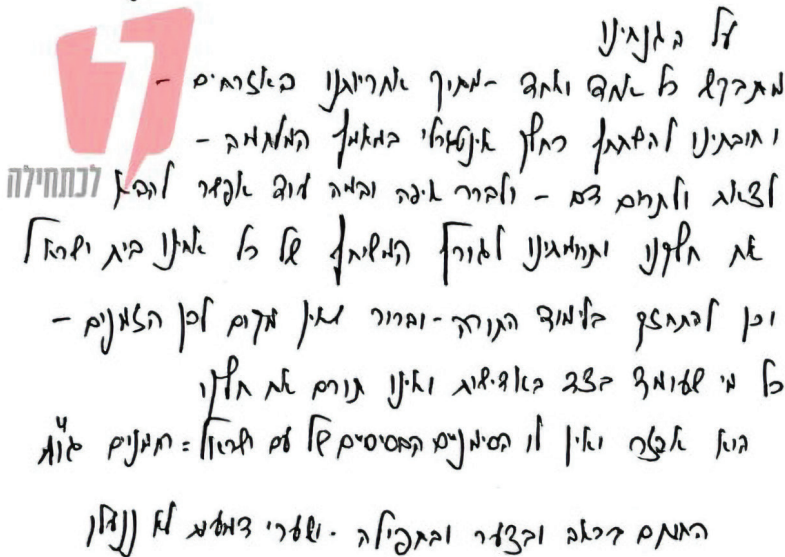 על כן אנחנו
מתבקש כל אחד ואחד - מתוך אחריותנו כאזרחים -
וחובתינו להשתתף כחלק אינטגרלי במאמץ המלחמה -
לצאת ולתרום דם - ולברר איפה ובמה עוד אפשר להביא
לכתחילה
את חלקנו ותרומתינו לגורל המשותף של כל אחינו בית ישראל
וכן להתחזק בלימוד התורה - וברור שאין מקום לבין הזמנים -
כל מי שעומד בצד באדישות ואינו תורם את חלקו
הוא אכזר ואין לו הסימנים הבסיסיים של עם ישראל = רחמנים
החותם בכאב ובצער ובתפילה - ושערי דמעות לא ננעלו